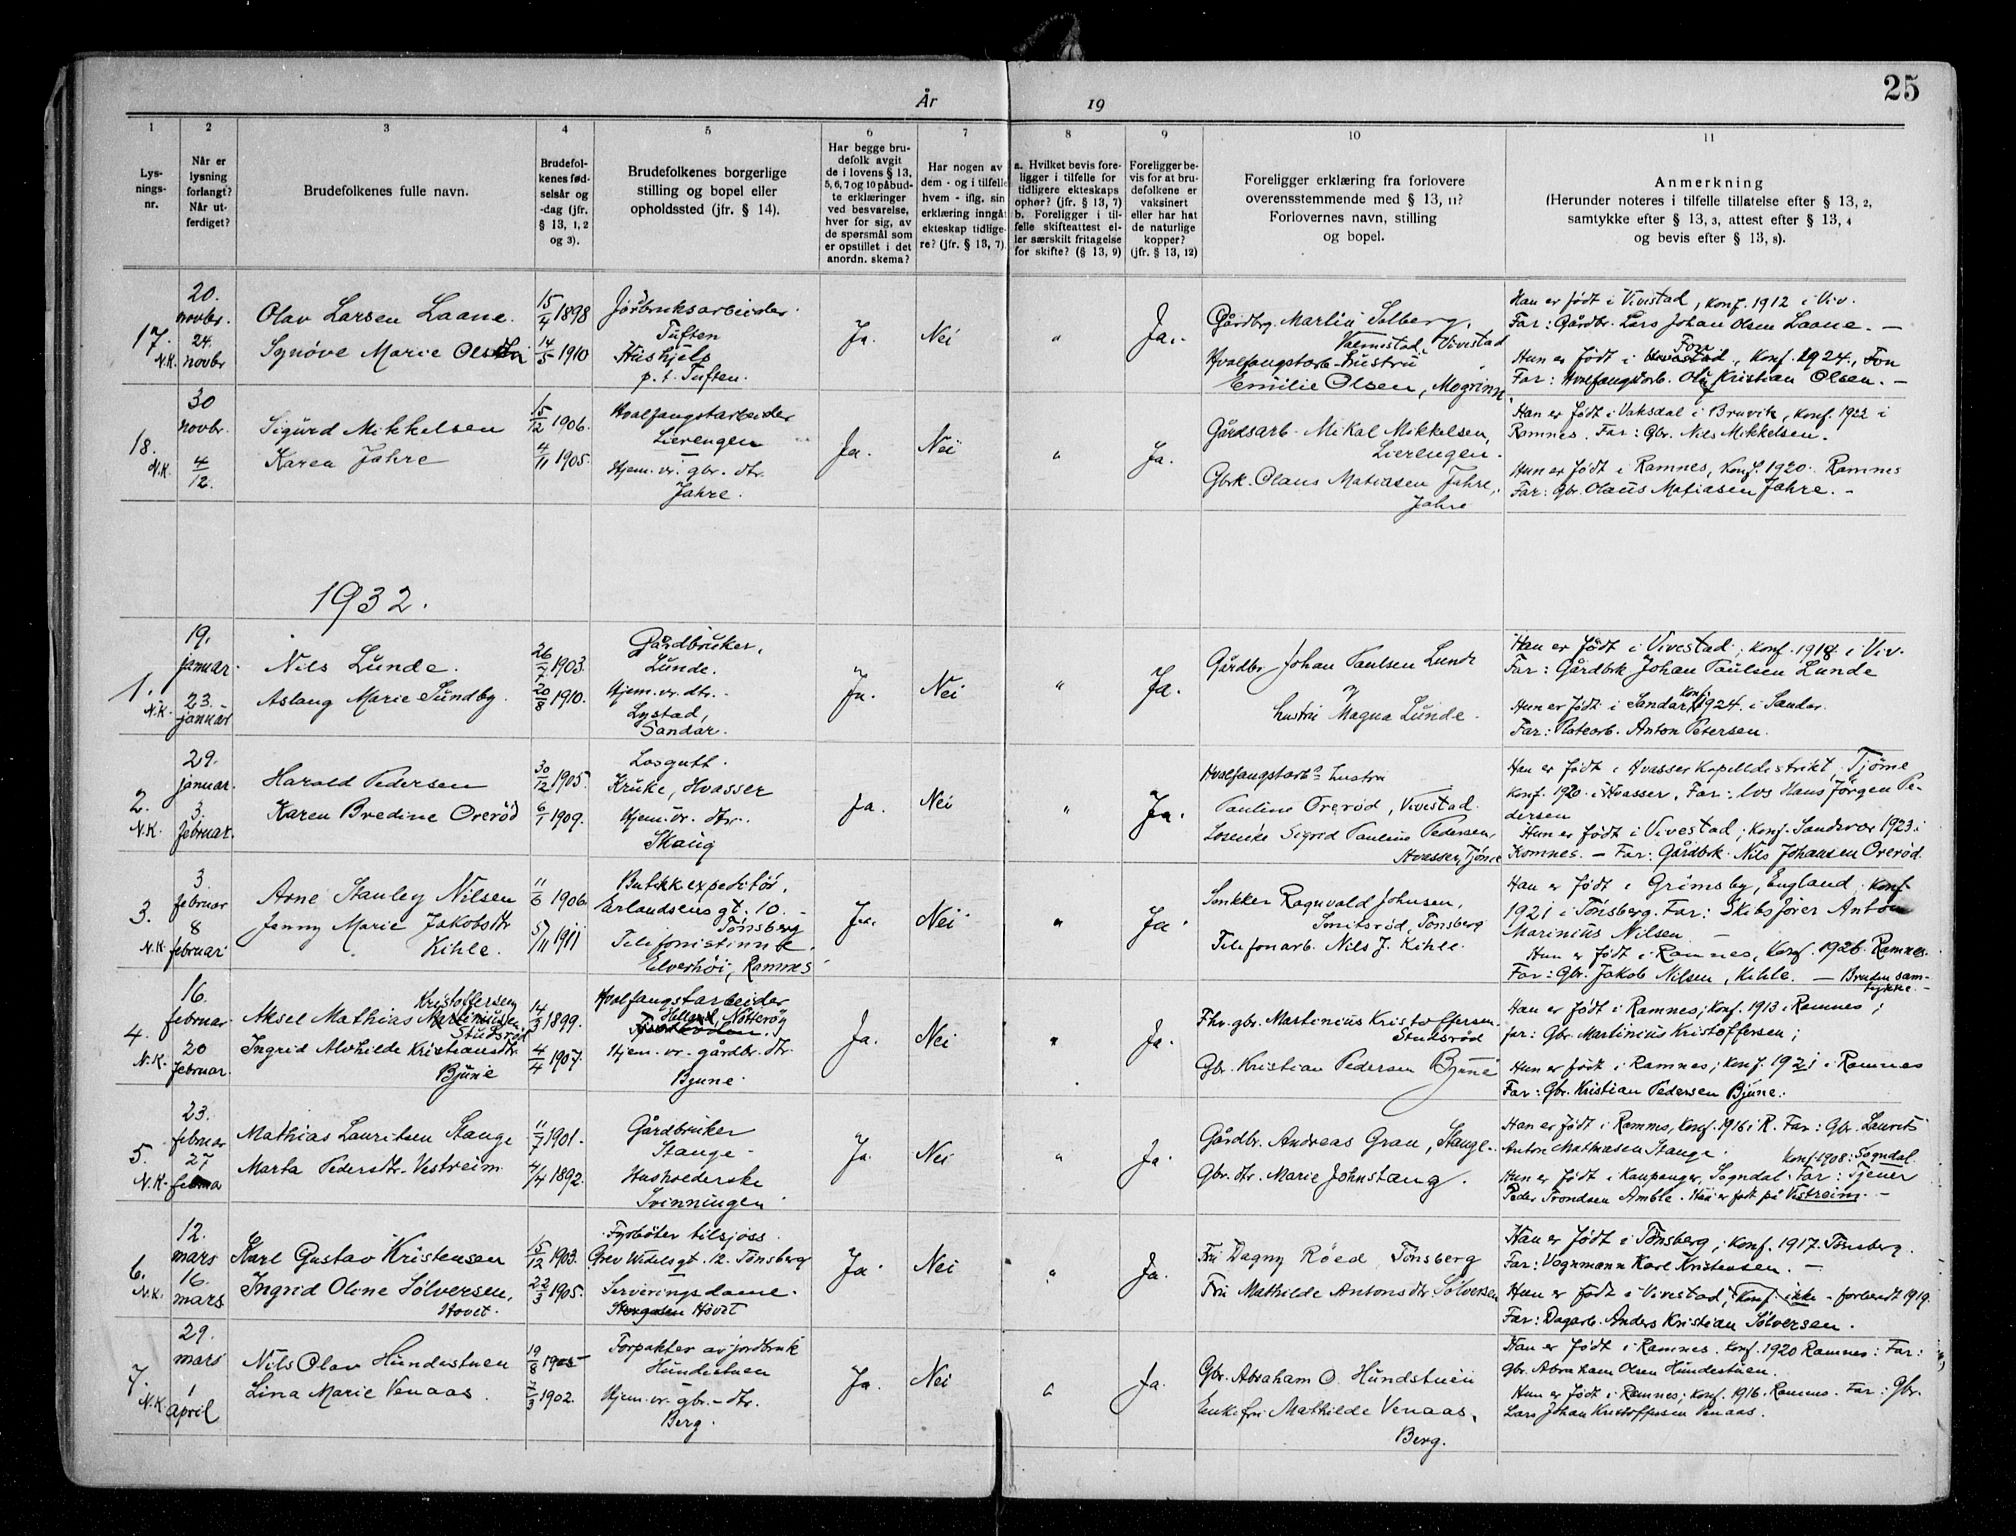 25
År 19
1 2 3 4 5 6 7 8 9 10 11
Lys-
nings-
nr.
Når er
lysning
forlangt?
Når ut-
ferdiget?
Brudefolkenes fulle navn.
Brudefol-
kenes fød-
selsår og
-dag (jfr.
§ 13, 1, 2
og 3).
Brudefolkenes borgerlige
stilling og bopel eller
opholdssted (jfr. § 14).
Har begge bru-
defolk avgit
de i lovens § 13,
5, 6, 7 og 10 påbud-
te erklæringer
ved besvarelse,
hver for sig, av
de spørsmål som
er opstillet i det
anordn. skema?
Har nogen av
dem - og i tilfelle
hvem - iflg. sin
erklæring inngått
ekteskap tidlige-
re? (jfr. § 13, 7).
a. Hvilket bevis fore-
ligger i tilfelle for
tidligere ekteskaps
ophør? (jfr. § 13, 7)
b. Foreligger i til-
felle skifteattest el-
ler særskilt fritagelse
for skifte? (§ 13, 9)
Foreligger be-
vis for at bru-
defolkene er
vaksinert
eller har hat
de naturlige
kopper?
(jfr. § 13, 12)
Foreligger erklæring fra forlovere
overensstemmende med § 13, 11?
Forlovernes navn, stilling
og bopel.
Anmerkning
(Herunder noteres i tilfelle tillatelse efter § 13, 2,
samtykke efter § 13, 3, attest efter § 13, 4
og bevis efter § 13, 8).
17.
N.K.
20.
novbr.
24.
novbr
Olav Larsen Laane.
Synøve Marie Olsen
15/4 1898
14/5 1910
Jordbruksarbeider
Tuften
Hushjelp
p.t. Tuften.
Ja. Nei " Ja.
Gårdbr. Martin Solberg,
Valmestad, Vivestad
Hvalfangstarb. hustru
Emilie Olsen, Mogrinn
Han er født i Vivestad, konf. 1912 i Viv.
Far: Gårdbr. Lars Johan Olsen Laane. —
Fon
Hun er født i Vivestad, konf. 1924, Fon
Far: Hvalfangstarb. Ole Kristian Olsen. —
18.
N.K.
30
novbr.
4/12.
Sigurd Mikkelsen
Karen Jahre
15/12 1906.
4/11 1905.
Hvalfangstarbeider
Lierengen
Hjem. vr. gbr. dtr.
Jahre.
Ja. Nei " Ja.
Gårdsarb. Mikal Mikkelsen,
Lierengen.
Gbrk. Olaus Matiasen Jahre,
Jahre
Han er født i Vaksdal i Bruvik, konf. 1922 i
Ramnes. Far: Gbr. Nils Mikkelsen.
Hun er født i Ramnes, konf. 1920. Ramnes
Far: Gbr. Olaus Matiasen Jahre. —
1932.
1.
N.K.
19.
januar.
23.
januar
Nils Lunde.
Aslaug Marie Sundby.
26/7 1903.
20/8 1910.
Gårdbruker,
Lunde.
Hjem. vr. dtr.
Lystad,
Sandar.
Ja. Nei " Ja.
Gårdbr Johan Paulsen Lunde
og
hustru Magna Lunde.
Han er født i Vivestad; konf. 1918. i Viv.
Far: Gårdbrk Johan Paulsen Lunde
Hun er født i Sandar, konf. 1924. i Sandar.
Far: Platearb. Anton Petersen.
2.
N.K.
29.
januar.
3.
februar.
Harald Pedersen
Karen Bredine Orerød
30/12 1905.
6/1 1909.
Losgutt.
Kruke, Hvasser
Hjem. vr. dtr.
Skaug
Ja. Nei " Ja.
Hvalfangstarb. hustru
Pauline Orerød, Vivestad.
Losenke Sigrid Pauline Pedersen,
Hvasser, Tjøme
Han er født i Hvasser Kapelldistrikt, Tjøme
konf. 1920. i Hvasser, Far: los Hans Jørgen Pe-
dersen
Hun er født i Vivestad; konf. Sandsvær 1923 i
Komnes. — Far: Gårdbrk. Nils Johansen Orerød.
3.
N.K.
3.
februar
8
februar
Arne Stanley Nilsen
Jenny Marie Jakobsdtr
Kihle.
11/6 1906
5/11 1911
Butikkexpeditør,
Erlandsens gt. 10.
Tønsberg
Telefonistinne
Elverhøi, Ramnes
Ja. Nei " Ja
Snekker Ragnvald Johnsen,
Smitsrød, Tønsberg
Telefonarb. Nils J. Kihle.
Han er født i Grimsby, England, konf.
1921 i Tønsberg. Far: Skibsfører Anton
Marinius Nilsen
Hun er født i Ramnes, konf. 1926. Ramnes.
Far: Gbr. Jakob Nilsen, Kihle. — Bruden sam-
tykke. —
4.
N.K.
16.
februar.
20
februar.
Kristoffersen
Aksel Mathias Martiniussen
Studsrød
Ingrid Alvhilde Kristiansdtr.
Bjune
14/3 1899.
4/4 1907.
Hvalfangstarbeider
Nøtterøy
Hjem. vr. gårdbr. dtr.
Bjune.
Ja. Nei " Ja.
Fhv. gbr. Martinius Kristoffersen
Studsrød
Gbr. Kristian Pedersen Bjune
Han er født i Ramnes; konf. 1913 i Ramnes;
far: Gbr. Martinius Kristoffersen;
Hun er født i Ramnes; konf. 1921 i Ramnes
Far: Gbr. Kristian Pedersen Bjune.
5.
N.K.
23.
februar
27
februar
Mathias Lauritsen Stange
Marta Pedersdtr. Vestreim.
11/7 1901.
4/4 1892.
Gårdbruker
Stange
Husholderske
Svinningen
Ja. Nei " Ja.
Gårdbr. Andreas Grau, Stange.
Gbr. dtr. Marie Johnstang.
Han er født i Ramnes, konf. 1916 i R. Far: Gbr. Laurits
Anton Mathiasen Stange. Konf. 1908: Sogndal.
Hun er født i Kaupanger, Sogndal. Far: Tjener
Peder Trondsen Amble. Hun er født på Vestreim. —
6.
N.K.
12.
mars
16.
mars
Karl Gustav Kristensen
Ingrid Oline Sølversen,
Hovet.
15/12 1903.
22/3 1905.
Fyrbøter tilsjøss.
Grev Wedelsgt. 12. Tønsberg
Serveringsdame.
Hovet
Ja Nei " Ja.
Fru Dagny Røed Tønsberg
Fru Mathilde Antonsdtr Sølversen
Han er født i Tønsberg; konf. 1917. Tønsberg.
Far: Vognmann Karl Kristensen. —
Hun er født i Vivestad, konf. ikke — forberedt 1919.
Far: Dagarb. Anders Kristian Sølversen.
7.
N.K.
29.
mars
1
april
Nils Olav Hundestuen
Lina Marie Venaas.
19/8 1905
7/3 1902.
Forpakter av jordbruk
Hundestuen
Hjem. vr. gbr. — dtr.
Berg.
Ja. Nei " Ja.
Gbr. Abraham O. Hundstuen
Enkefru Mathilde Venaas,
Berg.
Han er født i Ramnes. konf. 1920 Ramnes: Far:
gbr. Abraham Olsen Hundestuen.
Hun er født i Ramnes; konf. 1916. Ramnes. Far: Gbr.
Lars Johan Kristoffersen Venaas.